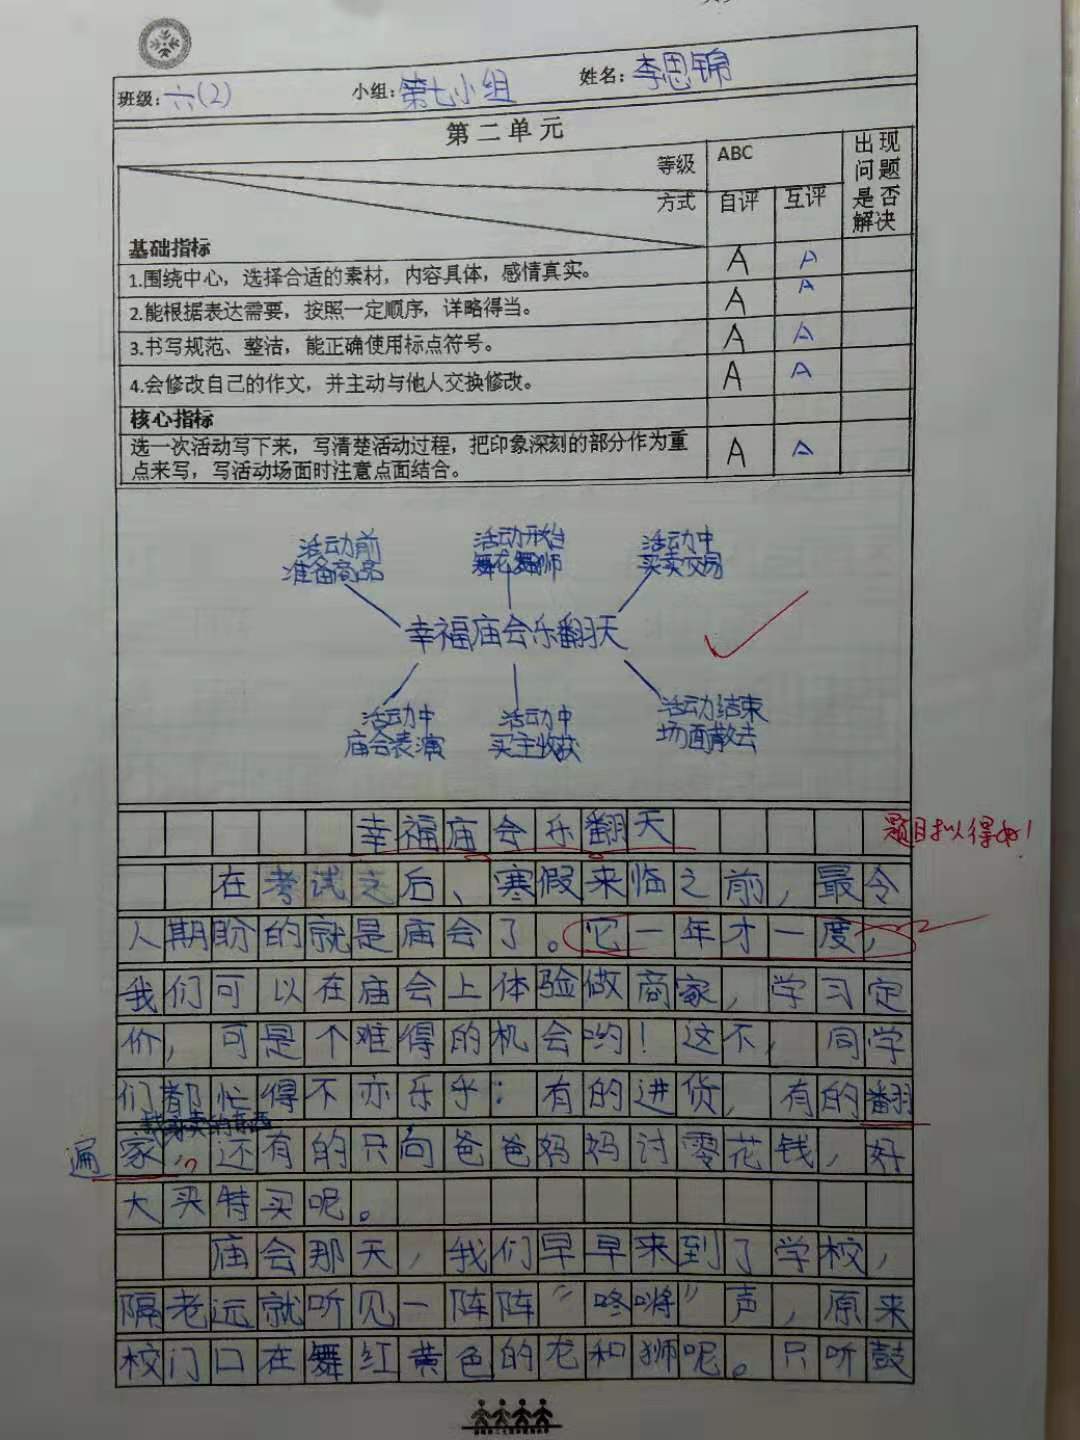 班级：六(2) 小组：第七小组 姓名：李思锦
第二单元
等级 ABC 出现问题是否解决
方式 自评 互评
基础指标
1.围绕中心，选择合适的素材，内容具体，感情真实。 A A
2.能根据表达需要，按照一定顺序，详略得当。 A A
3.书写规范、整洁，能正确使用标点符号。 A A
4.会修改自己的作文，并主动与他人交换修改。 A A
核心指标
选一次活动写下来，写清楚活动过程，把印象深刻的部分作为重
点来写，写活动场面时注意点面结合。 A A
活动前 活动开始 活动中
准备商品 舞龙舞狮 买卖交易
幸福庙会乐翻天
活动中 活动中 活动结束
庙会表演 买主收获 场面散去
幸福庙会乐翻天 题目拟得好！
在考试之后、寒假来临之前，最令
人期盼的就是庙会了。它一年才一度，
我们可以在庙会上体验做商家，学习定
价，可是个难得的机会哟！这不，同学
们都忙得不亦乐乎：有的进货，有的翻
我要卖的东西
遍家，还有的只向爸爸妈妈讨零花钱，好
大买特买呢。
庙会那天，我们早早来到了学校，
隔老远就听见一阵阵“咚锵”声，原来
校门口在舞红黄色的龙和狮呢。只听鼓